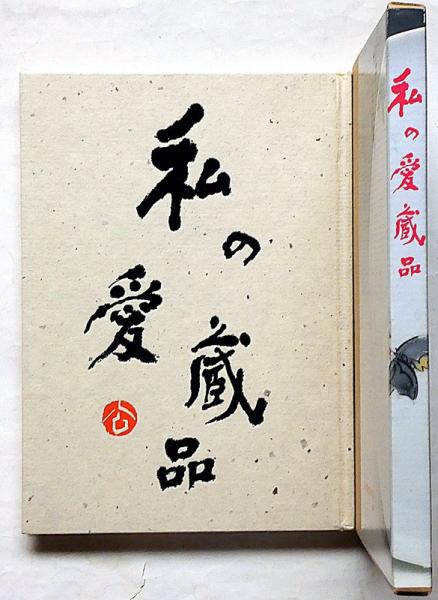 私の愛蔵品
公
私の愛蔵品